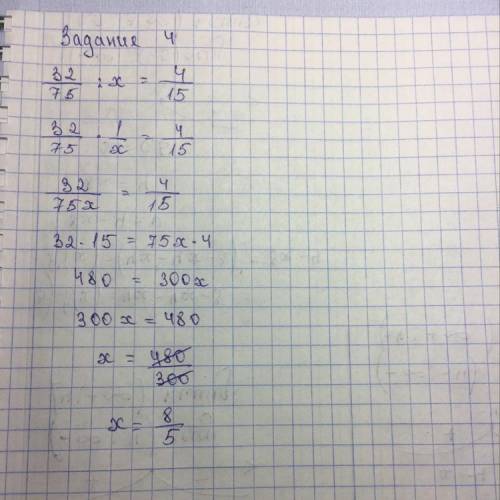 Задание 4
32/75 : x = 4/15
32/75 · 1/x = 4/15
32/75x = 4/15
32·15 = 75x·4
480 = 300x
300x = 480
x = 480/300
x = 8/5